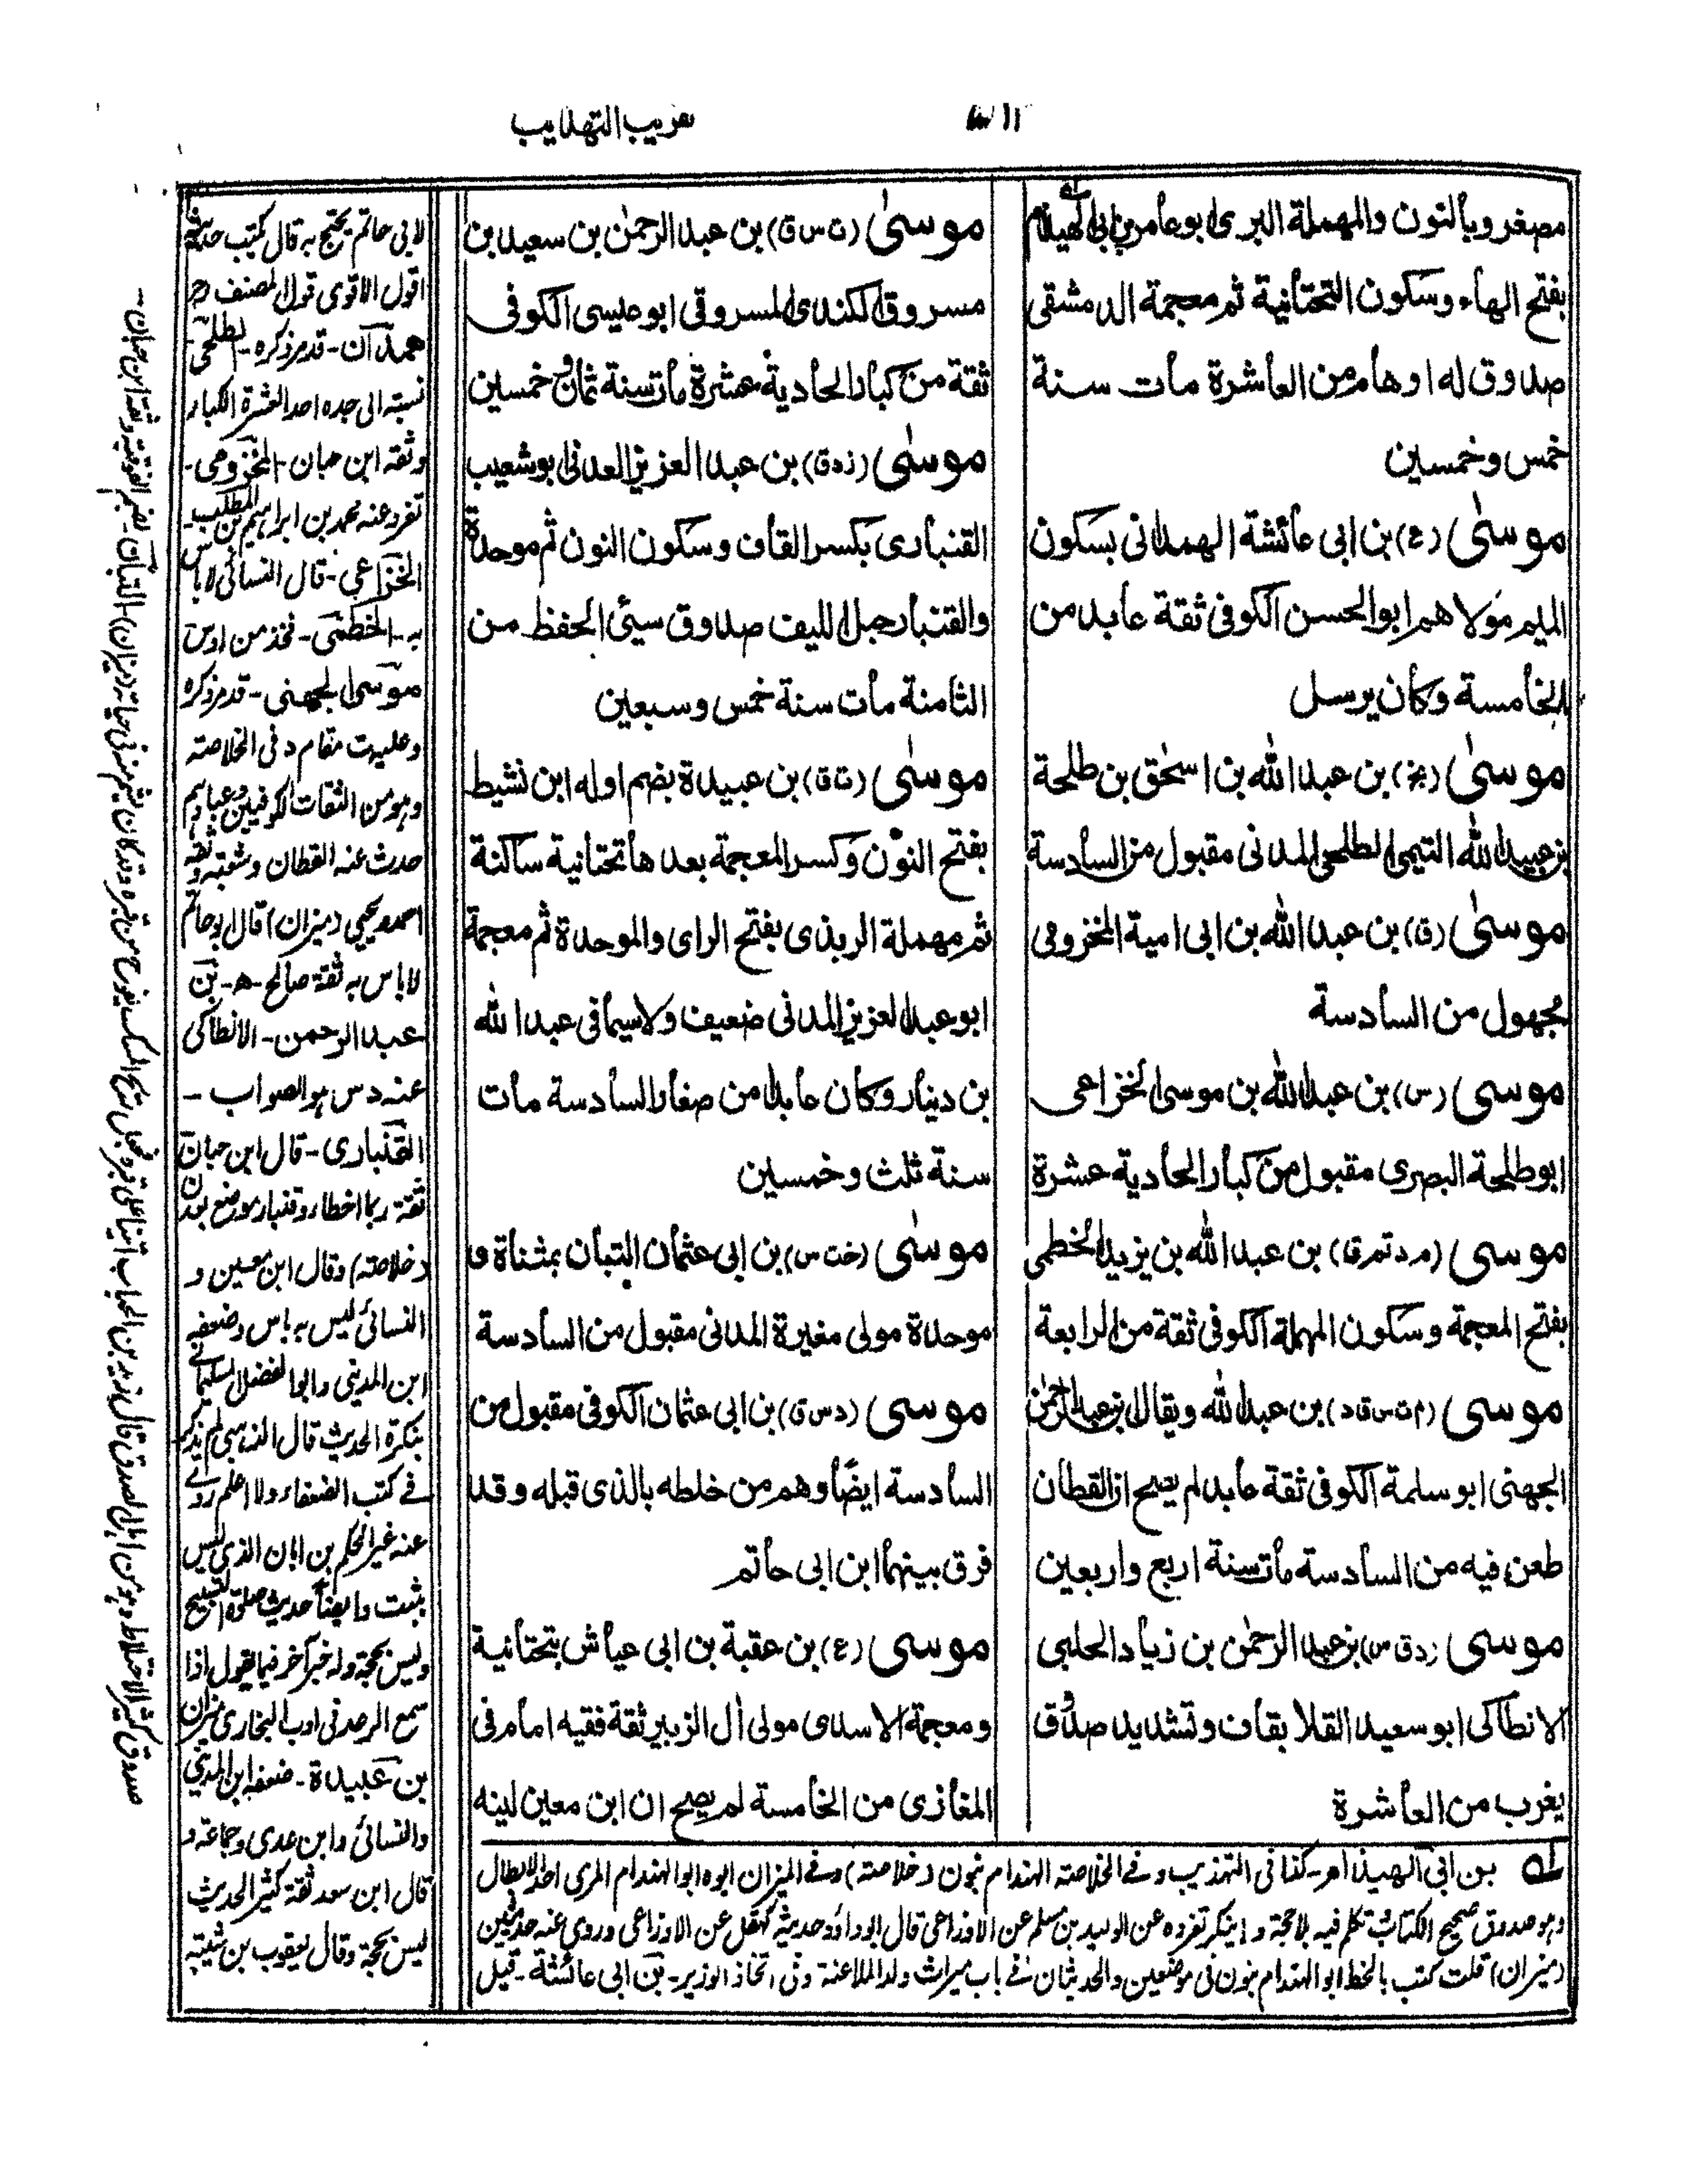 تقريب التهذيب
مصغر وبالنون والمهملة البرى ابو عامر بن ابى الهيذام
بفتح الهاء وسكون التحتانية ثم معجمة الدمشقى
صدوق له اوهام من العاشرة مات سنة
خمس وخمسين
موسىٰ (ع) بن ابى عائشة الهمدانى بسكون
الميم مولاهم ابو الحسن الكوفى ثقة عابد من
الخامسة وكان يرسل
موسىٰ (بخ) بن عبد الله بن اسحٰق بن طلحة
بن عبيد الله التيمى الطلحى المدنى مقبول من السادسة
موسىٰ (ق) بن عبد الله بن ابى امية المخزومى
مجهول من السادسة
موسى (س) بن عبد الله بن موسى الخزاعى
ابو طلحة البصرى مقبول من كبار الحادية عشرة
موسى (م د تم ق) بن عبد الله بن يزيد الخطمى
بفتح المعجمة وسكون المهملة الكوفى ثقة من الرابعة
موسى (م ت س ق د) بن عبد الله ويقال بن عبد الرحمٰن
الجهنى ابو سلمة الكوفى ثقة عابد لم يصح ان القطان
طعن فيه من السادسة مات سنة اربع واربعين
موسى (د ق س) بن عبد الرحمٰن بن زياد الحلبى
الانطاكى ابو سعيد القلا بقاف وتشديد صدوق
يغرب من العاشرة
موسىٰ (ت س ق) بن عبد الرحمٰن بن سعيد بن
مسروق الكندى المسروقى ابو عيسى الكوفى
ثقة من كبار الحادية عشرة مات سنة ثمان وخمسين
موسىٰ (ز د ق) بن عبد العزيز العدنى ابو شعيب
القنبارى بكسر القاف وسكون النون ثم موحدة
والقنبار حبل الليف صدوق سيئ الحفظ من
الثامنة مات سنة خمس وسبعين
موسىٰ (ت ق) بن عبيدة بضم اوله ابن نشيط
بفتح النون وكسر المعجمة بعدها تحتانية ساكنة
ثم مهملة الربذى بفتح الراى والموحدة ثم معجمة
ابو عبد العزيز المدنى ضعيف ولا سيما فى عبد الله
بن دينار وكان عابدا من صغار السادسة مات
سنة ثلث وخمسين
موسىٰ (خت س) بن ابى عثمان التبان بمثناة و
موحدة مولى مغيرة المدنى مقبول من السادسة
موسى (د س ق) بن ابى عثمان الكوفى مقبول من
السادسة ايضًا وهم من خلطه بالذى قبله وقد
فرق بينهما ابن ابى حاتم
موسى (ع) بن عقبة بن ابى عياش بتحتانية
ومعجمة الاسدى مولى اٰل الزبير ثقة فقيه امام فى
المغازى من الخامسة لم يصح ان ابن معين لينه
لابى حاتم يحتج به قال كتب حديثه
اقول الاقوى قول المصنف
همدان - قد مر ذكره - الطلحى
نسبته الى جده احد العشرة الكبار
وثقه ابن حبان - المخزومى -
تفرد عنه محمد بن ابراهيم بن المطلب -
الخزاعى - قال النسائى لا باس
به - الخطمى - فخذ من اوس
موسى الجهنى - قد مر ذكره
وهو من الثقات الكوفيين وعبادهم
حدث عنه القطان وشعبة وثقه
احمد ويحيى (ميزان) قال ابو حاتم
لا باس به ثقة صالح - ه - بن
عبد الرحمن - الانطاكى
عند د س هو الصواب -
القنبارى - قال ابن حبان
ثقة ربما اخطا وقنبار موضع بعدن
(خلاصه) وقال ابن معين و
النسائى ليس به باس وضعفه
ابن المدينى وابو الفضل السليمانے
بنكرة الحديث قال الذهبى لم يذكر
فے كتب الضعفاء ولا اعلم روے
عنه غير الحكم بن ابان الذى ليس
بثبت وايضًا حديث صلوة التسبيح
وليس بحجة وله خبر آخر فيما يقول اذا
سمع الرعد فى ادب البخارى ميزان
بن عبيدة - ضعفه ابن المدينى
والنسائى وابن عدى وجماعة و
قال ابن سعد ثقة كثير الحديث
ليس بحجة وقال يعقوب بن شيبة
له بن ابى الهيذام - كذا فى التهذيب وفے الخلاصه الهندام بنون (خلاصه) وفے الميزان ابوه ابو الهندام المرى احد الابطال
وهو صدوق صحيح الكتاب تكلم فيه بلا حجة و لا ينكر تفرده عن الوليد بن مسلم عن الاوزاعى قال ابو داؤد حديثه عن الاوزاعى وروى عنه حديثين
(ميزان) قلت كتب بالخط ابو الهندام بنون فى موضعين والحديثان فے باب ميراث ولد الملاعنة وفى اتخاذ الوزير - بن ابى عائشة - قيل